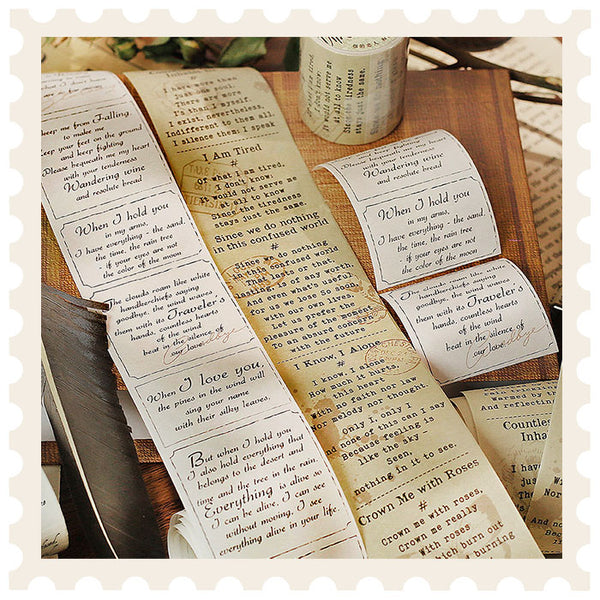 what I don't have
Keep me from Falling
to make me
Keep your feet on the ground
and keep fighting
Please bequeath me my heart
with your tenderness
Wandering wine
and resolute bread
When I hold you
in my arms,
I have everything - the sand,
the time, the rain tree
if your eyes are not
the color of the moon
The clouds roam like white
handkerchiefs saying
goodbye, the wind waves
them with its Traveler's
hands, countless hearts
of the wind
beat in the silence of
our love
When I love you,
the pines in the wind will
sing your name
with their silky leaves.
But when I hold you
I also hold everything that
belongs to the desert and
time and the tree in the rain.
Everything is alive so
I can be alive, I can see
without moving, I see
everything alive in your life.
Inhabit
than one soul.
There are
I's than I myself.
I exist, nevertheless,
Indifferent to them all.
I silence them: I speak
I Am Tired
#
of what I am tired,
I don't know:
It would not serve me
at all to know
Since the tiredness
stays just the same.
Since we do nothing
in this confused world
#
Since we do nothing
in this confused world
That lasts or that,
lasting, is of any worth,
And even what's useful
for us we lose so soon,
with our own lives,
Let us prefer the
pleasure of the moment
To an absurd concern
with the future,
I Know, I Alone
#
I know, I alone
How much it hurts,
this heart
with no faith nor law
Nor melody nor thought.
Only I, only I
And none of this can I say
Because feeling is
like the sky-
Seen,
nothing in it to see.
Crown Me with Roses
#
Crown me with roses,
Crown me really
With roses -
which burn out
burning
When I hold you
in my arms,
I have everything - the sand,
the time, the rain tree
if your eyes are not
the color of the moon
and keep fighting
Please bequeath me my heart
with your tenderness
Wandering wine
and resolute bread
The clouds roam like white
handkerchiefs saying
goodbye, the wind waves
them with its Traveler's
hands, countless hearts
of the wind
beat in the silence of
our love
And reflecting
Countless
Inhabit
#